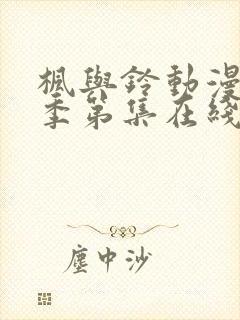 楓與鈴動漫
季第集在綫
塵中沙